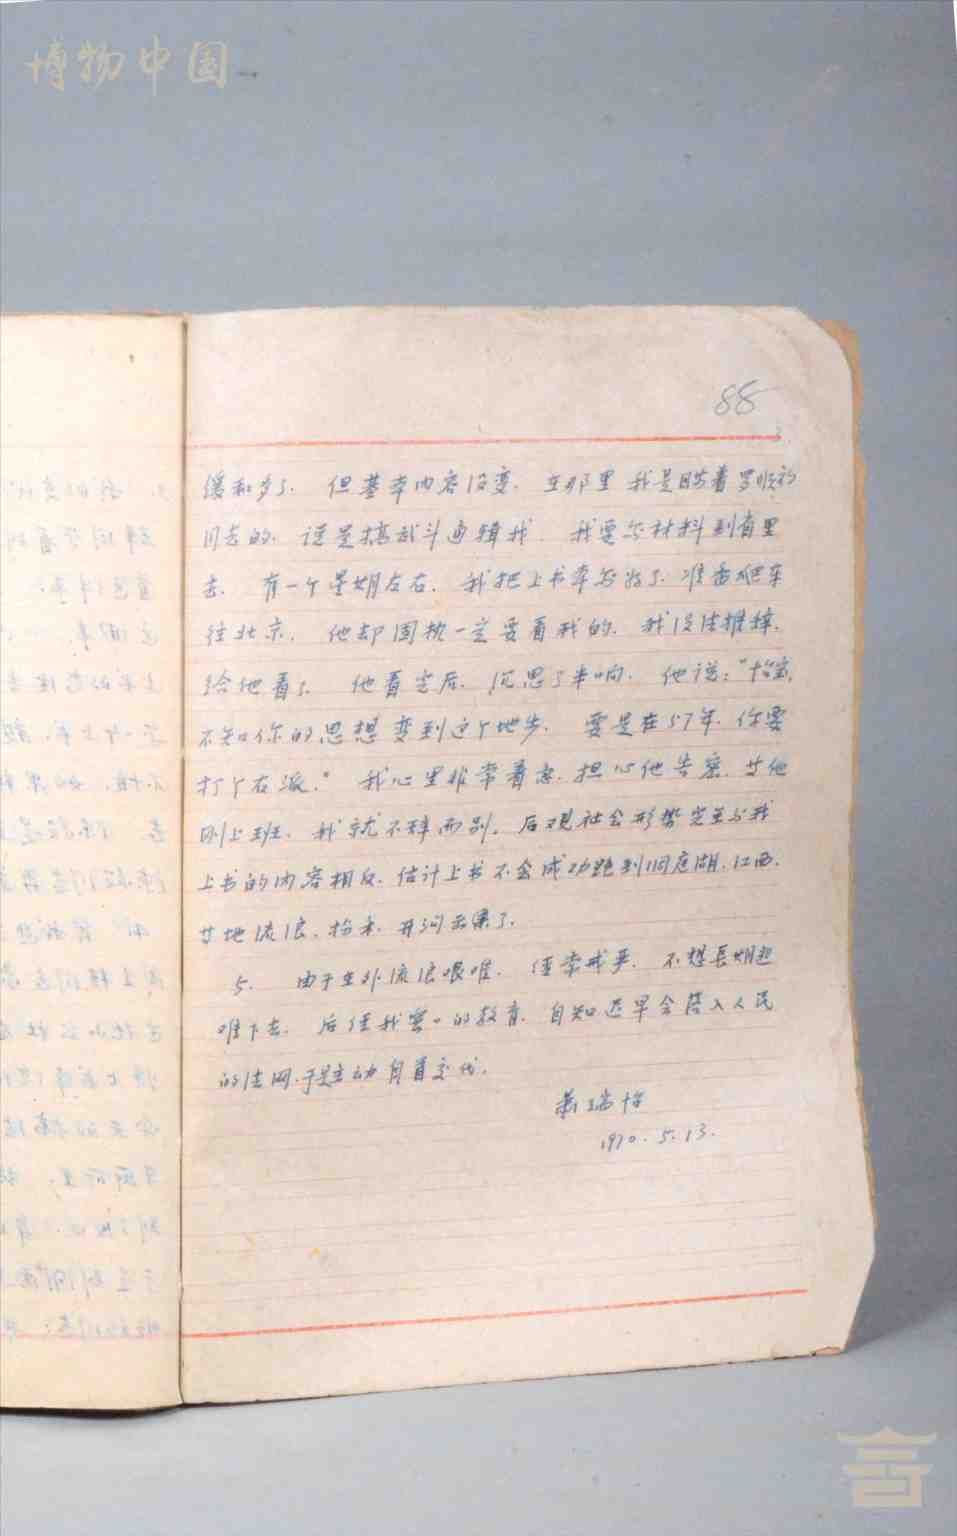 博物中国
88
3.
缓和多了. 但基本内容没变. 在那里我是瞒着罗顺初
同志的. 谎是搞武斗通缉我. 我要写材料到省里
去. 有一个星期左右. 我把上书本写好了. 准备爬车
往北京. 他却固执一定要看我的. 我没法推掉.
给他看了. 他看完后. 沉思了半响. 他说:"怡宝,
不知你的思想变到这个地步. 要是在57年. 你要
打个右派." 我心里非常着急. 担心他告密. 廿他
刚上班. 我就不辞而别. 后观社会形势完全与我
上书的内容相反. 估计上书不会成功跑到洞庭湖.江西.
廿地流浪. 扮禾. 开河去渠了.
5. 由于在外流浪艰难. 住宿戒严. 不想长期
难下去. 后经我 的教育. 自知迟早会落入人民
的法网.于是主动自首交代.
萧瑞怡
1970.5.13.